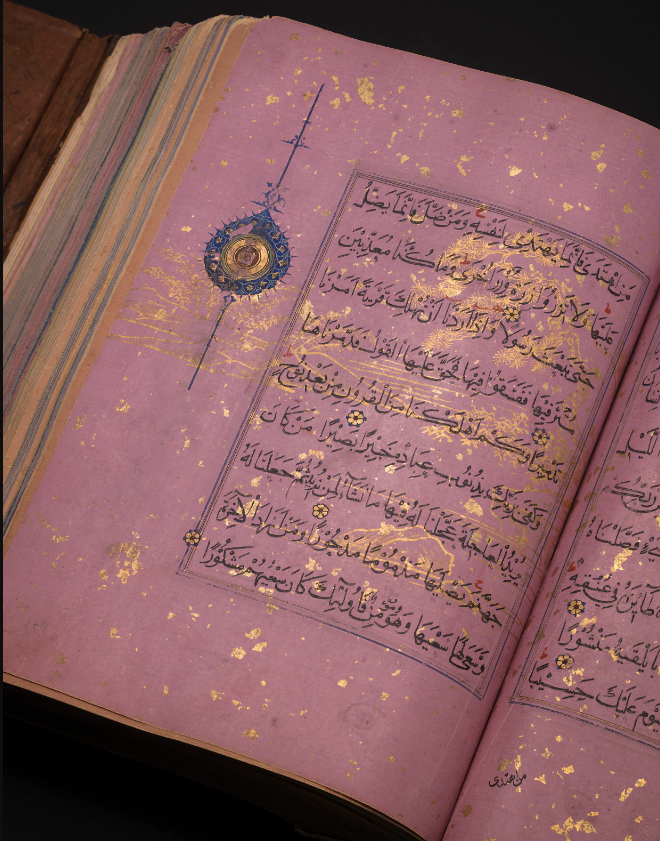 الليل
ربكم
فصلناه
طائره في عنقه
يلقيه منشورا
اليوم عليك حسيبا
من اهتدى
من اهتدى فانما يهتدى لنفسه ومن ضل فانما يضل
عليها ولا تزر وازرة وزر اخرى وما كنا معذبين
حتى نبعث رسولا واذا اردنا ان نهلك قرية امرنا
مترفيها ففسقوا فيها فحق عليها القول فدمرناها
تدميرا وكم اهلكنا من القرون من بعد نوح
وكفى بربك بذنوب عباده خبيرا بصيرا من كان
يريد العاجلة عجلنا له فيها ما نشاء لمن نريد ثم جعلنا له
جهنم يصليها مذموما مدحورا ومن اراد الاخرة
وسعى لها سعيها وهو مؤمن فاولئك كان سعيهم مشكورا